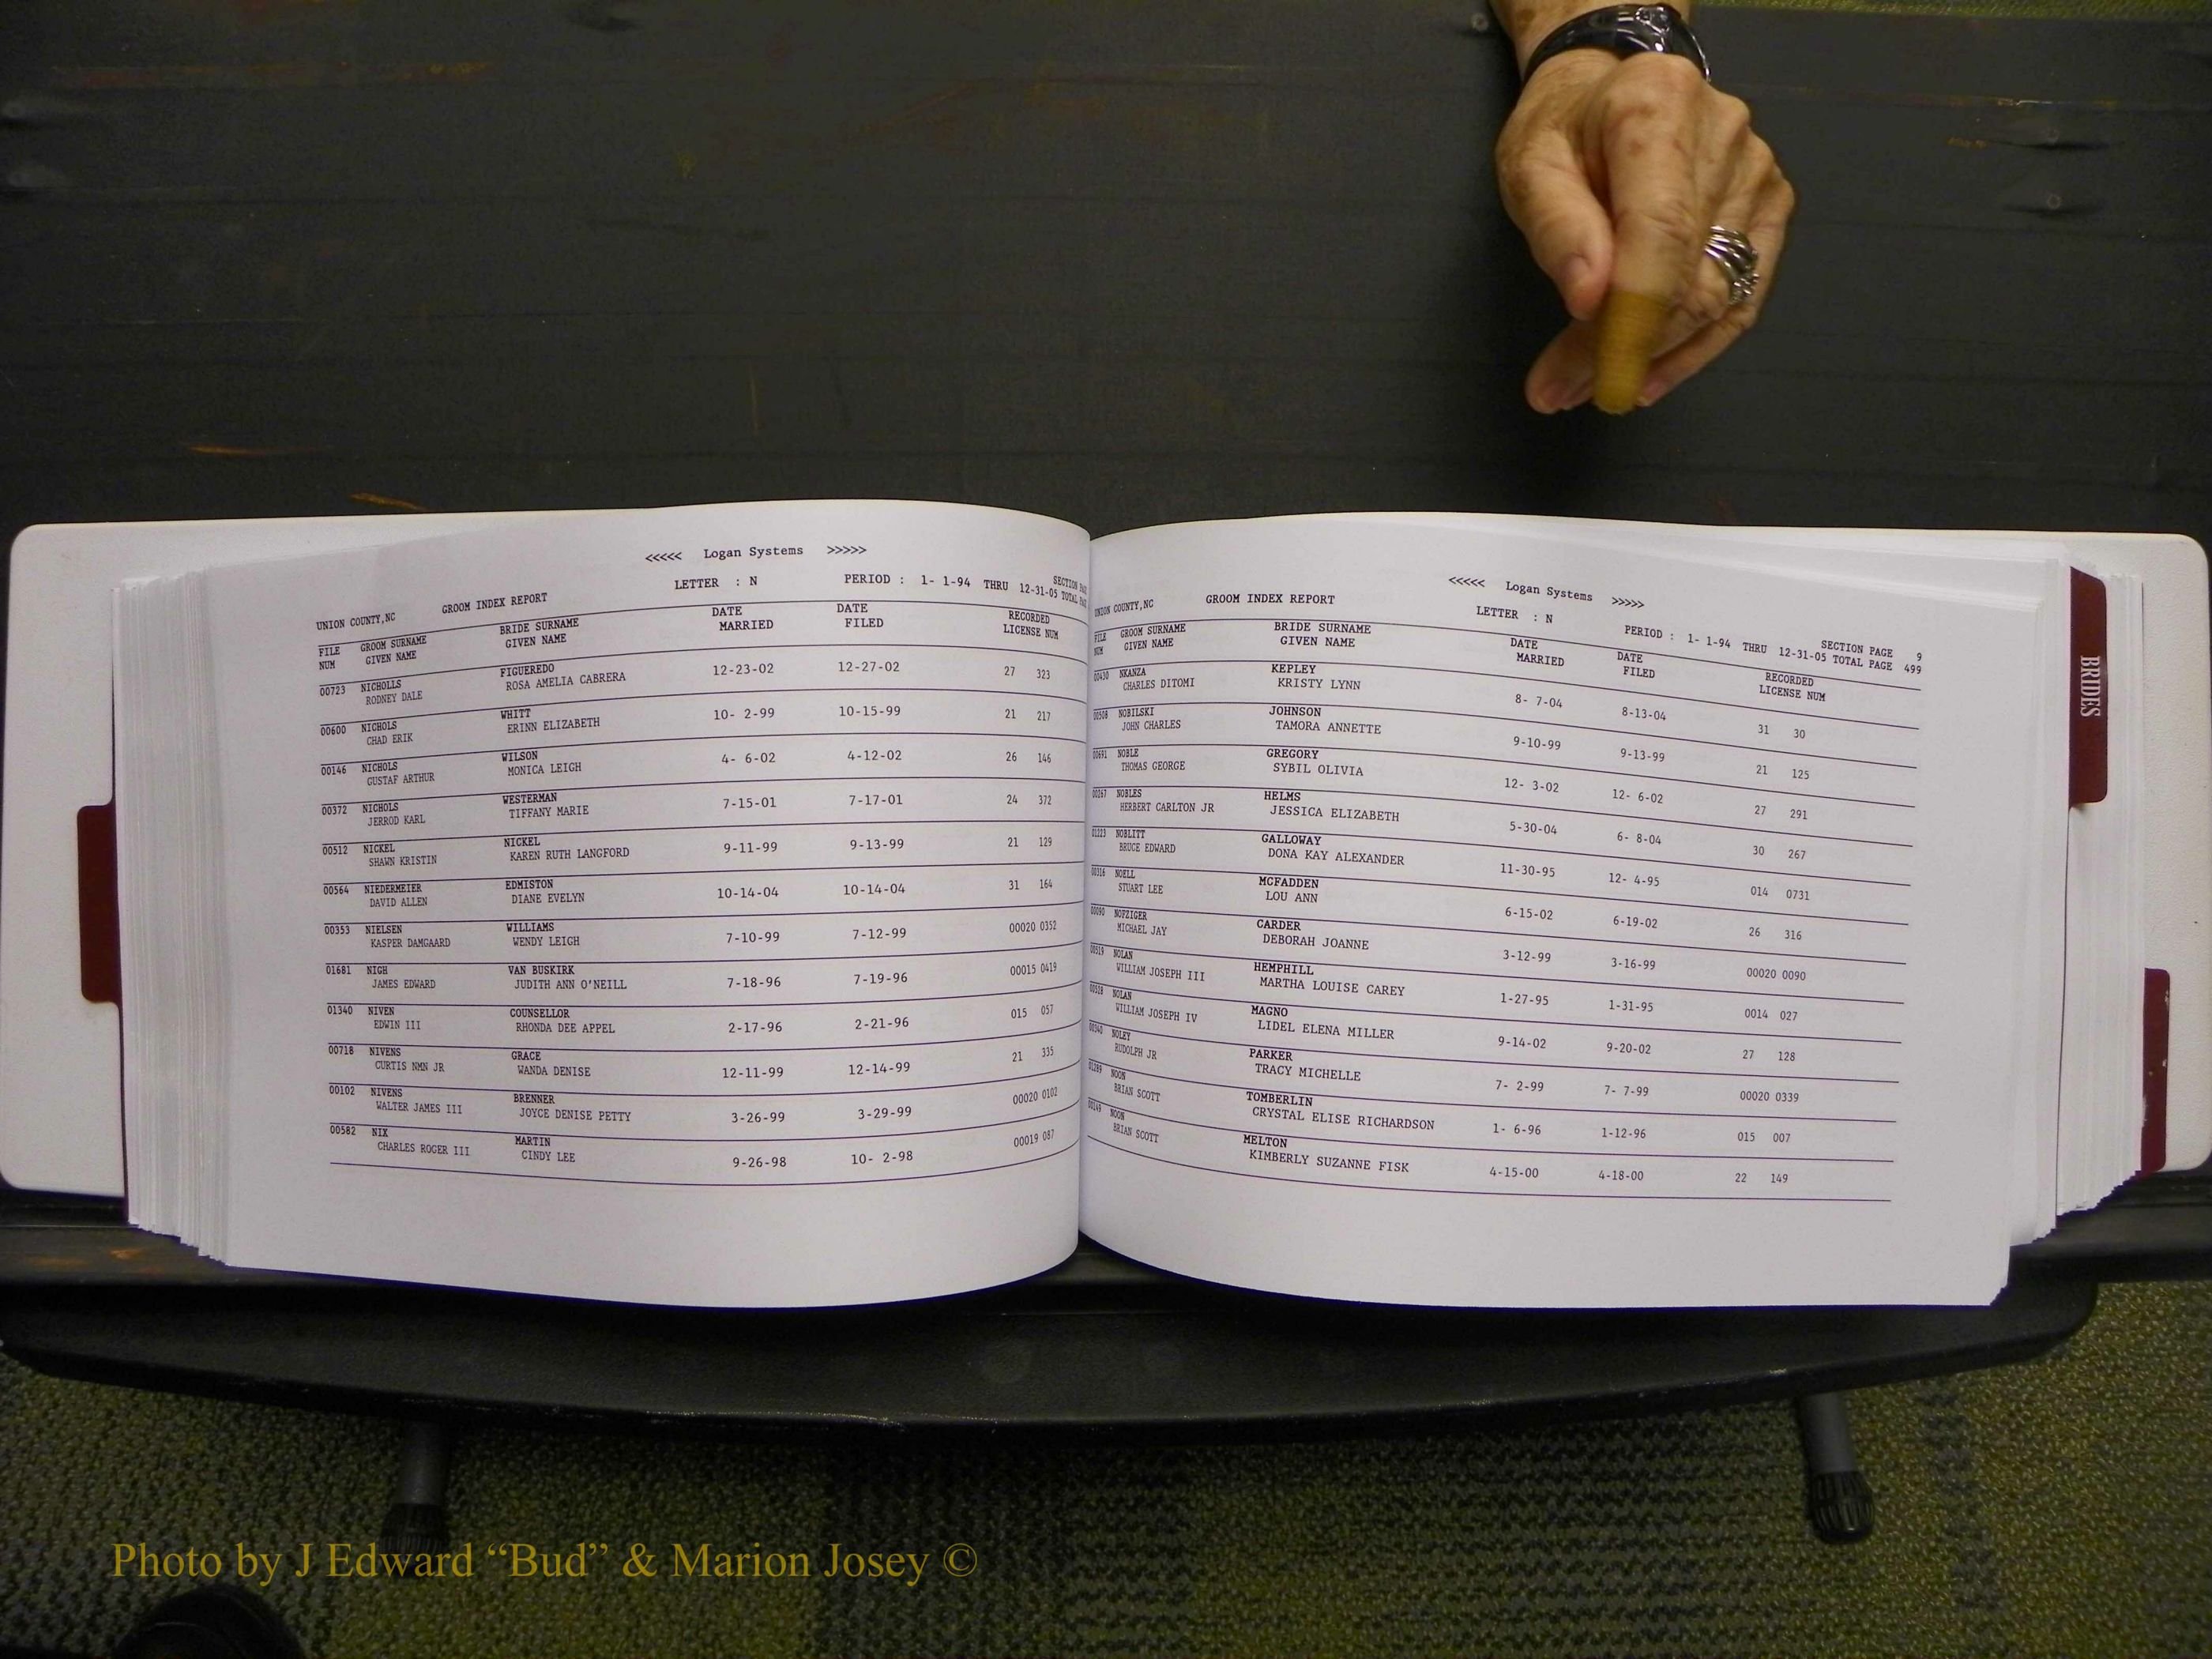 <<<<< Logan Systems >>>>>
LETTER : N PERIOD : 1- 1-94 THRU 12-31-05 TOTAL
SECTION
UNION COUNTY,NC GROOM INDEX REPORT
FILE GROOM SURNAME BRIDE SURNAME DATE DATE RECORDED
NUM GIVEN NAME GIVEN NAME MARRIED FILED LICENSE NUM
00723 NICHOLLS FIGUEREDO 12-23-02 12-27-02 27 323
RODNEY DALE ROSA AMELIA CABRERA
00600 NICHOLS WHITT 10- 2-99 10-15-99 21 217
CHAD ERIK ERINN ELIZABETH
00146 NICHOLS WILSON 4- 6-02 4-12-02 26 146
GUSTAF ARTHUR MONICA LEIGH
00372 NICHOLS WESTERMAN 7-15-01 7-17-01 24 372
JERROD KARL TIFFANY MARIE
00512 NICKEL NICKEL 9-11-99 9-13-99 21 129
SHAWN KRISTIN KAREN RUTH LANGFORD
00564 NIEDERMEIER EDMISTON 10-14-04 10-14-04 31 164
DAVID ALLEN DIANE EVELYN
00353 NIELSEN WILLIAMS 7-10-99 7-12-99 00020 0352
KASPER DAMGAARD WENDY LEIGH
01681 NIGH VAN BUSKIRK 7-18-96 7-19-96 00015 0419
JAMES EDWARD JUDITH ANN O'NEILL
01340 NIVEN COUNSELLOR 2-17-96 2-21-96 015 057
EDWIN III RHONDA DEE APPEL
00718 NIVENS GRACE 12-11-99 12-14-99 21 335
CURTIS NMN JR WANDA DENISE
00102 NIVENS BRENNER 3-26-99 3-29-99 00020 0102
WALTER JAMES III JOYCE DENISE PETTY
00582 NIX MARTIN 9-26-98 10- 2-98 00019 087
CHARLES ROGER III CINDY LEE
<<<<< Logan Systems >>>>>
UNION COUNTY,NC GROOM INDEX REPORT LETTER : N PERIOD : 1- 1-94 THRU 12-31-05 TOTAL PAGE 499
SECTION PAGE 9
FILE GROOM SURNAME BRIDE SURNAME DATE DATE RECORDED
NUM GIVEN NAME GIVEN NAME MARRIED FILED LICENSE NUM
00430 NKANZA KEPLEY 8- 7-04 8-13-04 31 30
CHARLES DITOMI KRISTY LYNN
00508 NOBILSKI JOHNSON 9-10-99 9-13-99 21 125
JOHN CHARLES TAMORA ANNETTE
00691 NOBLE GREGORY 12- 3-02 12- 6-02 27 291
THOMAS GEORGE SYBIL OLIVIA
00267 NOBLES HELMS 5-30-04 6- 8-04 30 267
HERBERT CARLTON JR JESSICA ELIZABETH
01223 NOBLITT GALLOWAY 11-30-95 12- 4-95 014 0731
BRUCE EDWARD DONA KAY ALEXANDER
00316 NOELL MCFADDEN 6-15-02 6-19-02 26 316
STUART LEE LOU ANN
00090 NOFZIGER CARDER 3-12-99 3-16-99 00020 0090
MICHAEL JAY DEBORAH JOANNE
00519 NOLAN HEMPHILL 1-27-95 1-31-95 0014 027
WILLIAM JOSEPH III MARTHA LOUISE CAREY
00528 NOLAN MAGNO 9-14-02 9-20-02 27 128
WILLIAM JOSEPH IV LIDEL ELENA MILLER
00340 NOLEY PARKER 7- 2-99 7- 7-99 00020 0339
RUDOLPH JR TRACY MICHELLE
01289 NOON TOMBERLIN 1- 6-96 1-12-96 015 007
BRIAN SCOTT CRYSTAL ELISE RICHARDSON
00149 NOON MELTON 4-15-00 4-18-00 22 149
BRIAN SCOTT KIMBERLY SUZANNE FISK
BRIDES
Photo by J Edward “Bud” & Marion Josey ©